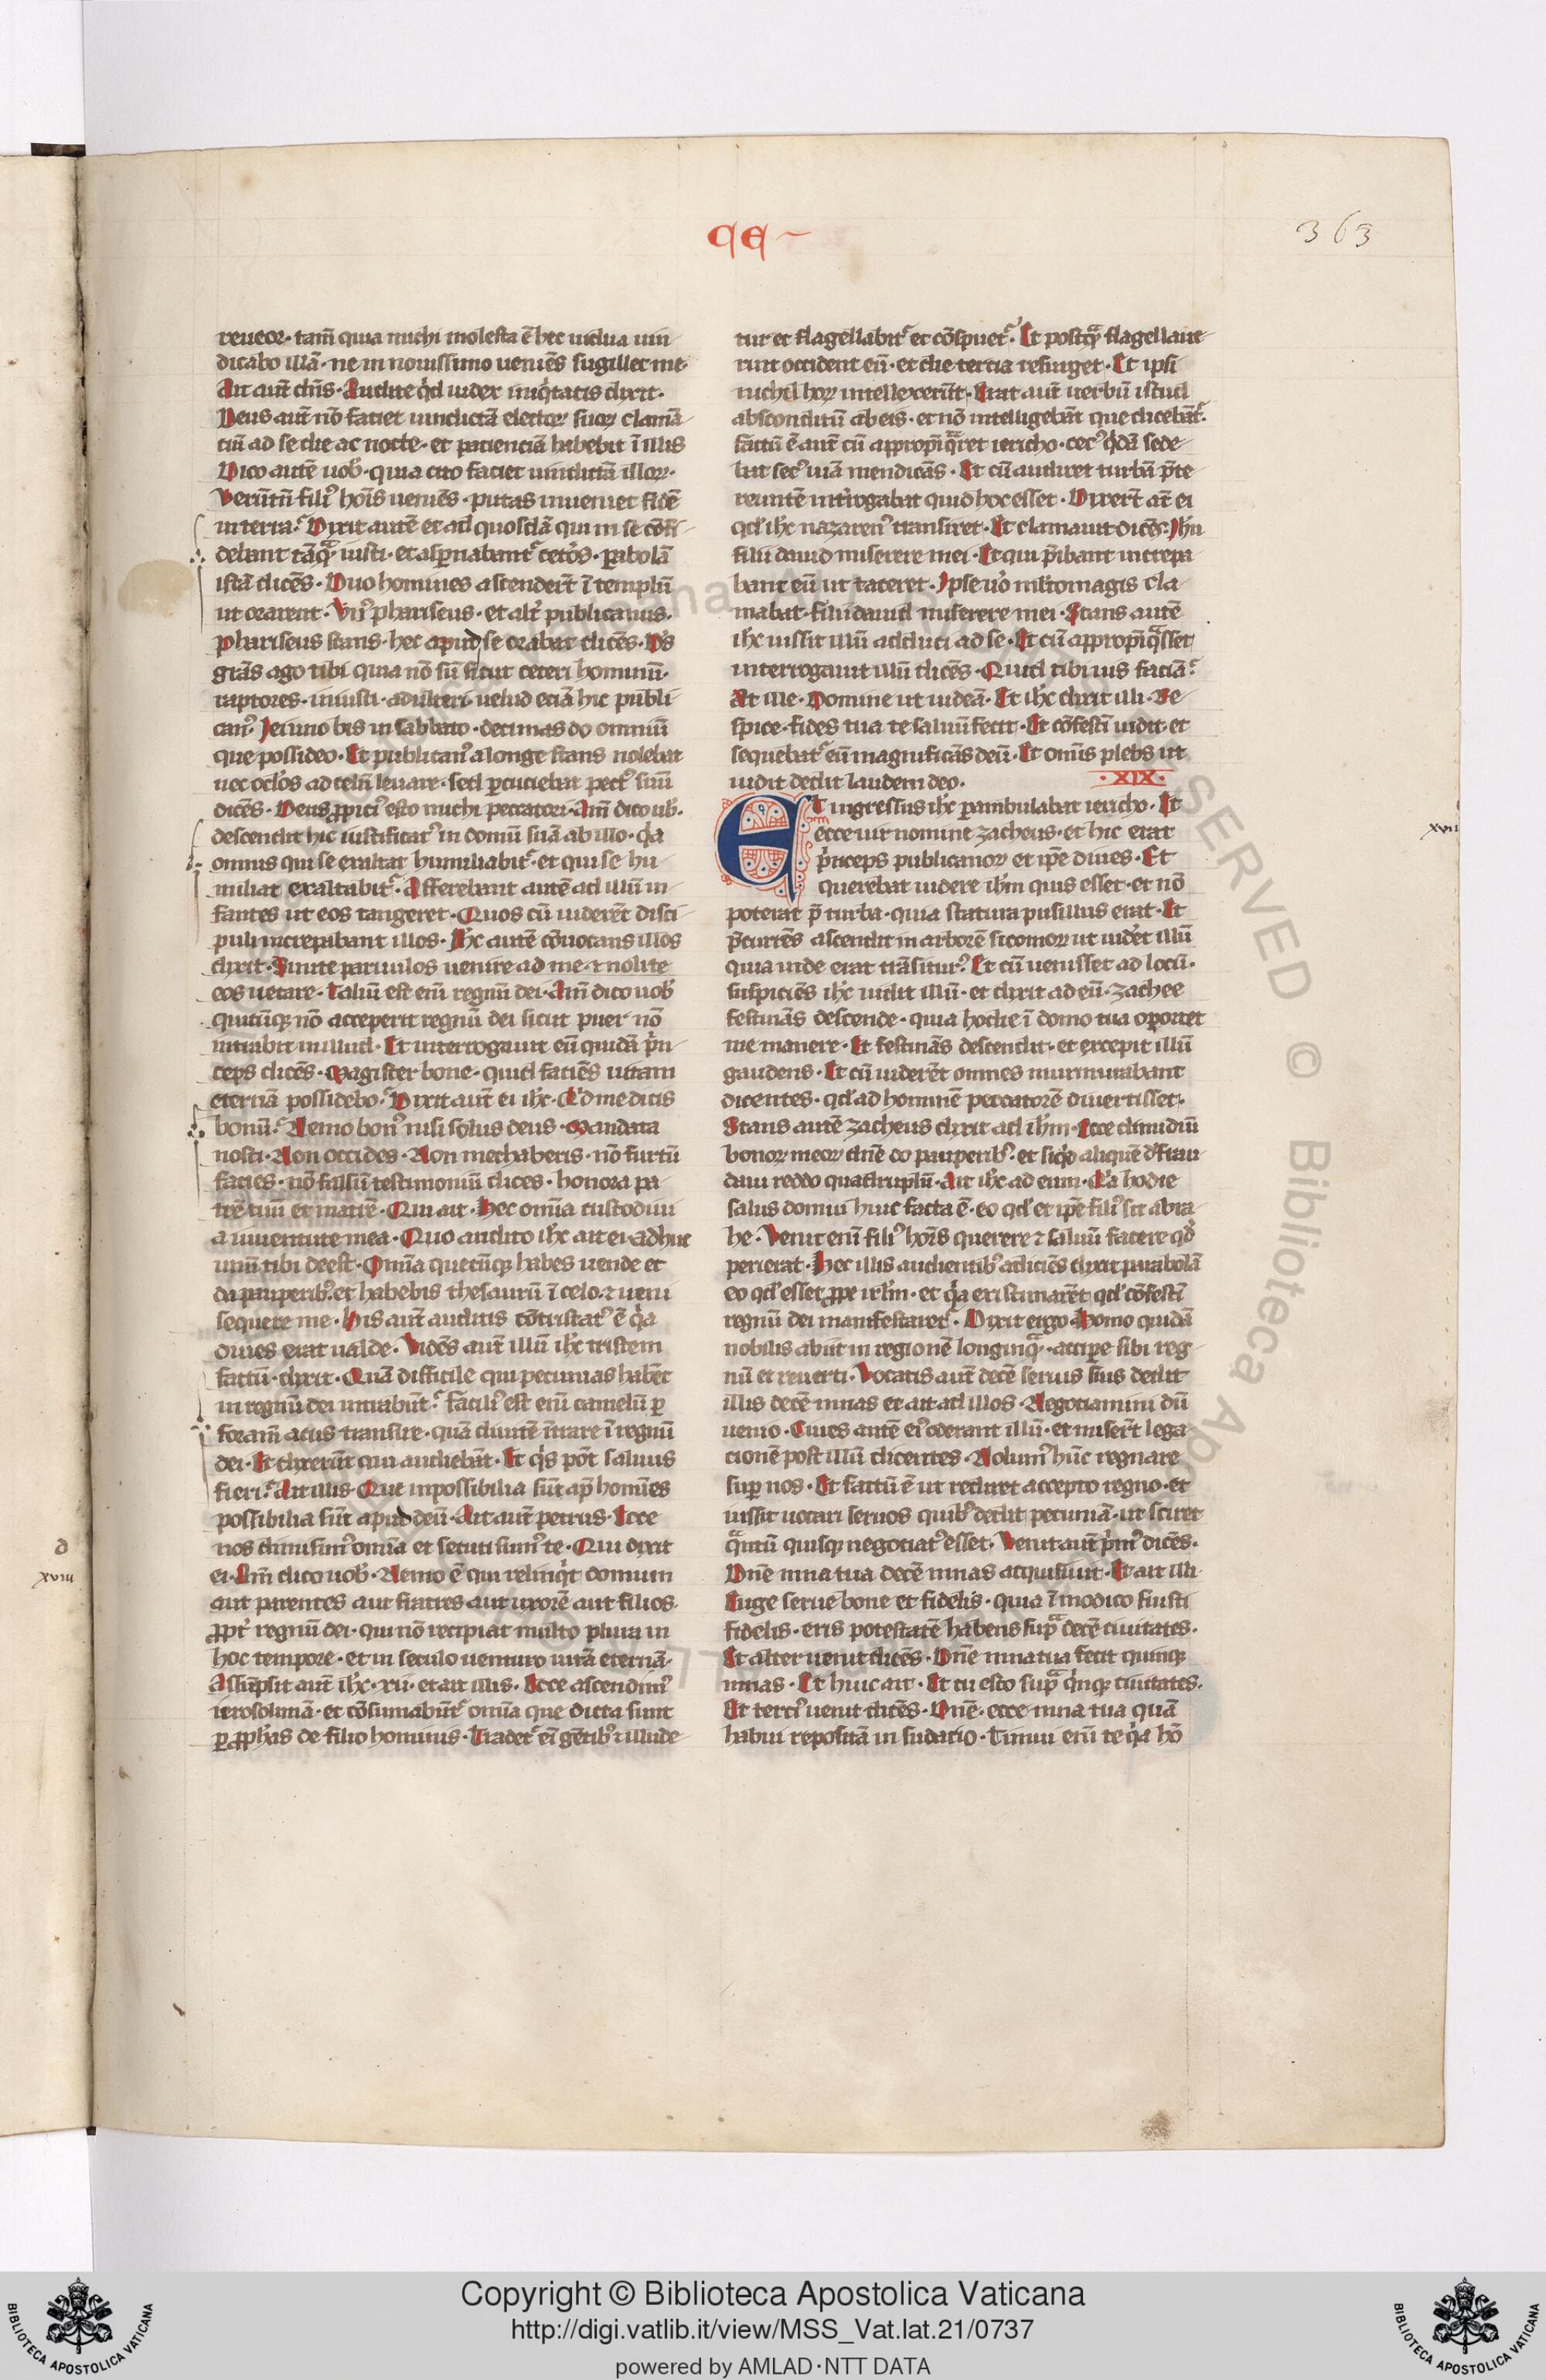 CE
363
reueor · tam̄ quia michi molesta ē hec uidua uin
dicabo illā · ne in nouissimo ueniēs sugillet me ·
Ait aūt dn̄s · Audite qͥd iudex iniqͥtatis dixit ·
Deus aūt nō faciet uindictā electoꝝ suoꝝ clamā
ciū ad se die ac nocte · et pacienciā habebit ī illis
Dico autē uob̓ · quia cito faciet uindictā illoꝝ ·
Verūtn̄ filiꝰ hoīs ueniēs · putas inueniet fidē
in terra · Dixit autē et ad quosdā qui in se cōfi
debant tāqᷓ iusti · et aspnabant᷑ cetos · pabolā
istā dicēs · Duo homines ascender̄t ī templū
ut orarent · Vnꝰ phariseus · et alt̓ publicanus ·
Phariseus stans · hec apud se orabat dicēs · D̓s
gr̄as ago tibi quia nō sū sicut ceteri hominū ·
raptores · iniusti · adulteri · uelud eciā hic publi
canꝰ Jeiuno bis in sabbato · decimas do omniū
que possideo · Et publicanꝰ a longe stans nolebat
nec oclos ad celū leuare · sed ꝑcuciebat pectꝰ suū
dicēs · Deus ꝓpiciꝰ esto michi peccatori · Am̄ dico uob̓ ·
descendit hic iustificatꝰ in domū suā ab illo · qͥa
omnis qui se exaltat humiliabit᷑ · et qui se hu
miliat exaltabit᷑ · Afferebant autē ad illū in
fantes ut eos tangeret · Quos cū uiderēt disci
puli increpabant illos · Ih̄c autē cōuocans illos
dixit · Sinite paruulos uenire ad me ⁊ nolite
eos uetare · Taliū est enī regnū dei · Am̄ dico uob̓
quicūqꝫ nō acceperit regnū dei sicut puer nō
intrabit in illud · Et interrogauit eū quidā pͥn
ceps dicēs · Magister bone · quid faciēs uitam
eternā possidebo · Dixit aūt ei ih̄c · Qͥd me dicis
bonū · Nemo bonꝰ nisi solus deus · Mandata
nosti · Non occides · Non mechaberis · nō furtū
facies · nō falsū testimoniū dices · honora pa
trē tuū et matrē · Qui ait · Hec omīa custodiui
a iuuentute mea · Quo audito ih̄c ait ei · adhuc
unū tibi deest · Omīa quecūqꝫ habes uende et
da pauperibꝰ · et habebis thesaurū ī celo · ⁊ ueni
sequere me · His aūt auditis cōtristatꝰ ē qͥa
diues erat ualde · Vidēs aūt illū ih̄c tristem
factū · dixit · Quā difficile qui pecunias habēt
in regnū dei intrabūt · faciliꝰ est enī camelū ꝑ
foram̄ acus transire · quā diuitē ītrare ī regnū
dei · Et dixerūt qui audiebāt · Et qͥs pōt saluus
fieri · Ait illis · Que inpossibilia sūt ap̄ homīes
possibilia sūt apud deū · Ait aūt petrus · Ecce
nos dimisimꝰ omīa et secuti sumꝰ te · Qui dixit
ei · Am̄ dico uob̓ · Nemo ē qui relinqͥt domum
aut parentes aut fratres aut uxorē aut filios
ꝓpt̓ regnū dei · qui nō recipiat multo plura in
hoc tempore · et in seculo uenturo uitā eternā ·
Assūpsit aūt ih̄c · xii · et ait illis · Ecce ascendimꝰ
ierosolimā · et cōsumabūt᷑ omīa que dicta sunt
ꝑ ꝓph̄as de filio hominis · Tradet᷑ eī gētibꝰ ⁊ illude
d
xviii
tur et flagellabit᷑ et cōspuet᷑ · Et postqᷓ flagellaue
rint occident eū · et die tercia resurget · Et ipsi
nichil hoꝝ intellexerūt · Erat aūt uerbū istud
absconditū ab eis · et nō intelligebāt que dicebāt᷑ ·
factū ē aūt cū appropīqᷓret iericho · cecꝰ qͥdā sede
bat secꝰ uiā mendicās · Et cū audiret turbā p̄te
reuntē int̓rogabat quid hoc esset · Dixer̄t aūt ei
qd̓ ih̄c nazarenꝰ transiret · Et clamauit dicēs · Jh̄u
fili dauid miserere mei · Et qui p̄ibant increpa
bant eū ut taceret · Ipse uͦo mltomagis cla
mabat · fili dauid miserere mei · Stans autē
ih̄c iussit illū adduci ad se · Et cū appropīqᷓsset
interrogauit illū dicēs · Quid tibi uis faciā ·
At ille · Domine ut uideā · Et ih̄c dixit illi · Re
spice · fides tua te saluū fecit · Et cōfestī uidit et
sequebat᷑ eū magnificās deū · Et omīs plebs ut
uidit dedit laudem deo ·
· XIX ·
Et ingressus ih̄c ꝑambulabat iericho · Et
ecce uir nomine zacheus · et hic erat
pͥnceps publicanoꝝ et ip̄e diues · Et
querebat uidere ih̄m quis esset · et nō
poterat p̄ turba · quia statura pusillus erat · Et
p̄currēs ascendit in arborē sicomoꝝ ut uidet illū
quia inde erat trāsiturꝰ · Et cū uenisset ad locū ·
suspiciēs ih̄c uidit illū · et dixit ad eū · zachee
festinās descende · quia hodie ī domo tua oportet
me manere · Et festinās descendit · et excepit illū
gaudens · Et cū uiderēt omnes murmurabant
dicentes · qd̓ ad hominē peccatorē diuertisset ·
Stans autē zacheus dixit ad ih̄m · Ecce dimidiū
bonoꝝ meoꝝ dn̄e do pauperibꝰ · et siqͥd aliquē dfrau
daui reddo quadruplū · Ait ih̄c ad eum · Qͥa hodie
salus domui huic facta ē · eo qd̓ et ip̄e filiꝰ sit abra
he · Venit enī filiꝰ hoīs querere ⁊ saluū facere qd̓
perierat · Hec illis audientibꝰ adiciēs dixit parabolā
eo qd̓ esset ꝓpe irl̄m · et qͥa existimarēt qd̓ cōfestī
regnū dei manifestaret᷑ · Dixit ergo Homo quidā
nobilis abiit in regionē longinqᷓ · accipe sibi reg
nū et reuerti · Vocatis aūt decē seruis suis dedit
illis decē mnas et ait ad illos · Negotiamini dū
uenio · Ciues autē eiꝰ oderant illū · et miser̄t lega
cionē post illū dicentes · Nolumꝰ hūc regnare
sup nos · Et factū ē ut rediret accepto regno · et
iussit uocari seruos quibꝰ dedit pecuniā · ut sciret
qᷓntū quisqꝫ negotiatꝰ esset · Venit aūt pͥmꝰ dicēs ·
Dn̄e mna tua decē mnas acquisiuit · Et ait illi ·
Euge serue bone et fidelis · quia ī modico fuisti
fidelis · eris potestatē habens supᷓ decē ciuitates ·
Et alter uenit dicēs · Dn̄e mna tua fecit quinqꝫ
mnas · Et huic ait · Et tu esto supᷓ qͥnqꝫ ciuitates ·
Et terciꝰ uenit dicēs · Dn̄e · ecce mna tua quā
habui repositā in sudario · Timui enī te qͥa hō
xviii
Copyright © Biblioteca Apostolica Vaticana
http://digi.vatlib.it/view/MSS_Vat.lat.21/0737
powered by AMLAD·NTT DATA
BIBLIOTECA APOSTOLICA VATICANA
BIBLIOTECA APOSTOLICA VATICANA